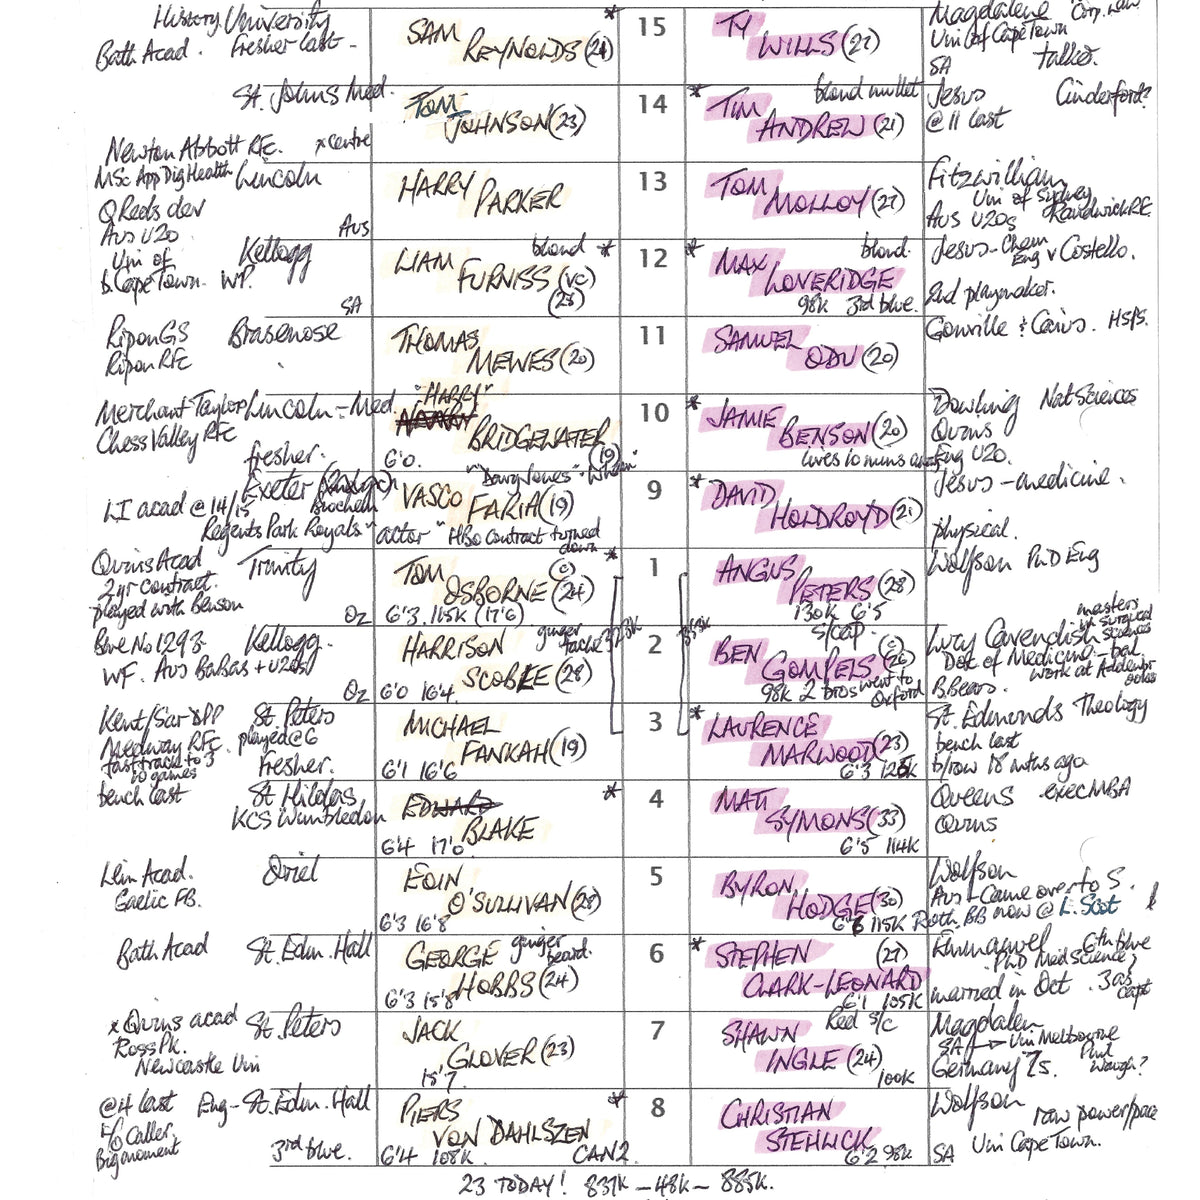 History. University
Bath Acad. Fresher last -
SAM
REYNOLDS (21)
*
15
TY
WILLS (27)
Magdalene Corp. Law
Uni of Cape Town
SA talker.
St. Johns Med.
Newton Abbott RFC. x centre
TOM
JOHNSON (23)
14
* TIM blond mullet
ANDREW (21)
Jesus Cinderford?
@ 11 last
MSc App Dig Health Lincoln
Q Reds dev
Aus U20 Aus
HARRY
PARKER
13
TOM
MOLLOY (27)
Fitzwilliam
Uni of Sydney
Aus U20s Randwick RFC
Uni of Kellogg
Cape Town. WP.
SA
LIAM blond *
FURNISS (VC)
(23)
12
* MAX blond.
LOVERIDGE
98K 3rd blue.
Jesus - Chem
Eng v Costello.
2nd playmaker.
Ripon GS Brasenose
Ripon RFC
THOMAS
MEWES (20)
11
SAMUEL
ODU (20)
Gonville & Caius. HSPS.
Merchant Taylor Lincoln - Med
Chess Valley RFC
fresher.
"HARRY"
BRIDGEWATER
6'0. (19)
10
* JAMIE
BENSON (20)
lives 10 mins away
Dowling Nat Sciences
Quins
Eng U20.
Exeter
Biochem
LI acad @ 14/15
Regents Park Royals" actor " HBO contract turned
down
"Davy Jones"
VASCO
FARIA (19)
9
* DAVID
HOLDROYD (21)
Jesus - medicine.
physical.
Quins Acad Trinity
2yr contract.
played with Benson
Oz
TOM (C) *
OSBORNE (24)
6'3 115K (17'6)
1
ANGUS
PETERS (28)
130K 6'5
Wolfson PhD Eng
Blue No 1293. Kellogg.
WF. Aus BaBas + U20s
Oz
HARRISON ginger
tache
SCOBLE (28)
6'0 16'4
2
s/cap.
BEN (C)
GOMPELS (26)
98K 2 bros went to
Oxford
masters
in surgical
sciences
Lucy Cavendish
Doc of Medicine - bal.
work at Addenbrookes
B.Bears.
Kent/Sar DPP St. Peters
Medway RFC. played @ 6
fast track to 3
10 games fresher.
MICHAEL
FANKAH (19)
6'1 16'6
3
* LAURENCE
MARWOOD (23)
6'3 125K
St. Edmonds Theology
bench last
b/row 18 mths ago
bench last St Hildas
KCS Wimbledon
EDWARD *
BLAKE
6'4 17'0
4
MATT
SYMONS (33)
6'5 114K
Queens exec MBA
Quins
Lein Acad. Oriel
Gaelic FB.
EOIN
O'SULLIVAN (28)
6'3 16'8
5
BYRON
HODGE (30)
6'6 115K
Wolfson
Aus - Came over to 5.
Roth. BB now @ L. Scot
Bath Acad St. Edm. Hall
GEORGE ginger
beard.
HOBBS (24)
6'3 15'8
6
* STEPHEN (27)
CLARK-LEONARD
6'1 105K
Emmanuel 6th blue
PhD Med Science
married in Oct. 3 as
capt
x Quins acad St. Peters
Ross Pk.
Newcastle Uni
JACK
GLOVER (23)
15'7.
7
Red s/c
SHAWN
INGLE (24)
100K
Magdalen
SA → Uni Melbourne
Germany 7s. Phil
Waugh?
@ 4 last Eng - St. Edm. Hall
L/O Caller
Big moment 3rd blue.
PIERS *
VON DAHLSZEN
6'4 108K. CAN 2
8
CHRISTIAN
STEHLICK
6'2 98K
Wolfson
raw power/pace
SA Uni Cape Town.
23 TODAY! 837K - 48K - 885K.